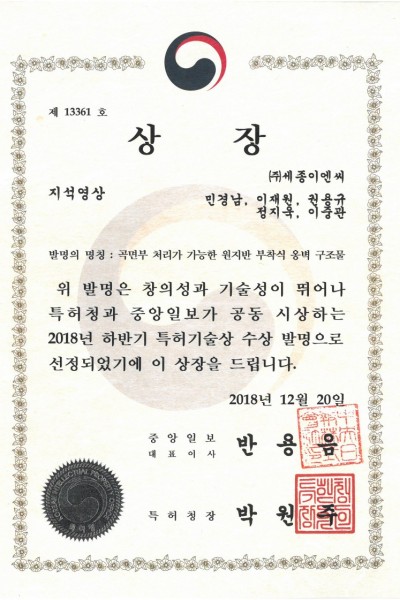 제 13361 호
상 장
㈜세종이엔씨
지석영상
민경남, 이재원, 권용규
정지욱, 이중관
발명의 명칭 : 곡면부 처리가 가능한 원지반 부착식 옹벽 구조물
위 발명은 창의성과 기술성이 뛰어나
특허청과 중앙일보가 공동 시상하는
2018년 하반기 특허기술상 수상 발명으로
선정되었기에 이 상장을 드립니다.
2018년 12월 20일
중앙일보
대표이사
반용음
특허청장
박원주